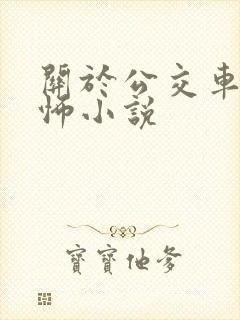 關於公交車
怖小說
寶寶他爹